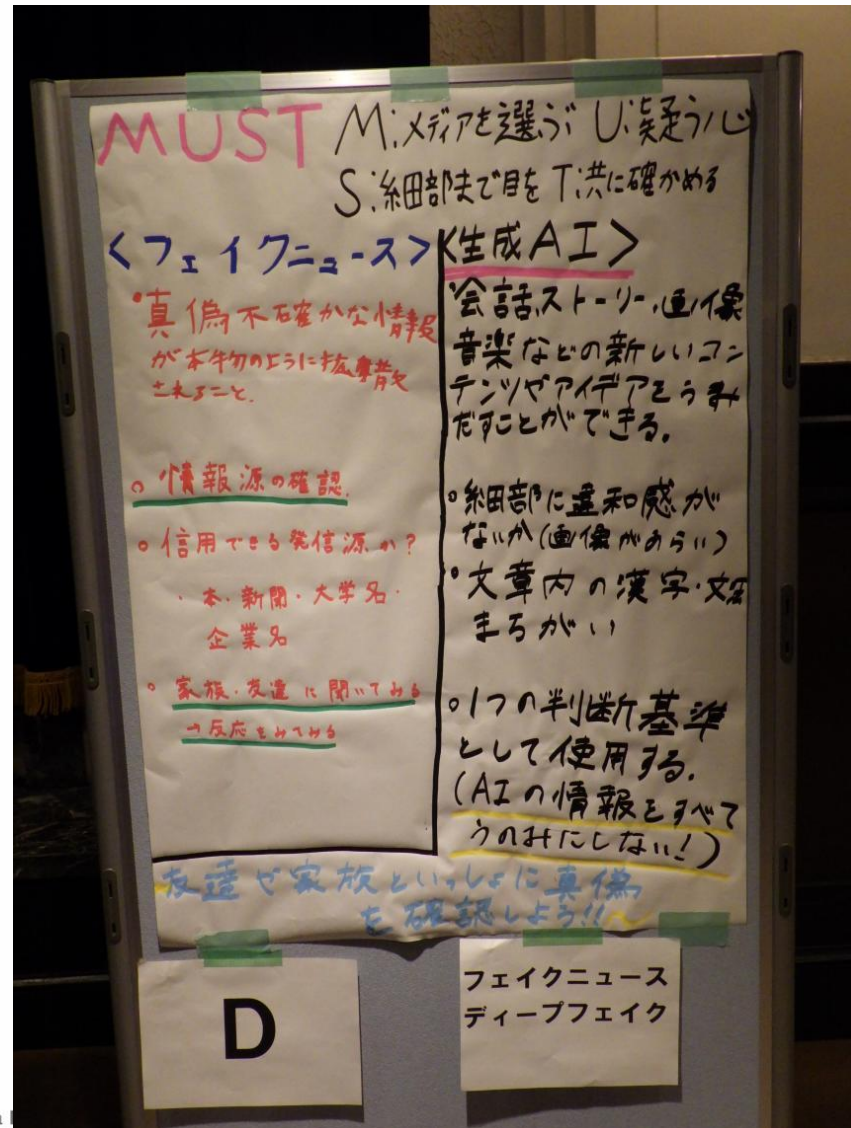 MUST M:メディアを選ぶ U:疑う心
S:細部まで目を T:共に確かめる
<フェイクニュース>
・真偽不確かな情報
が本物のように拡散
されること.
○情報源の確認.
○信用できる発信源か?
・本・新聞・大学名・
企業名
○家族・友達に聞いてみる
→反応をみてみる
<生成AI>
・会話,ストーリー,画像
音楽などの新しいコン
テンツやアイデアをうみ
だすことができる.
○細部に違和感が
ないか(画像があらい)
○文章内の漢字・文法
まちがい
○1つの判断基準
として使用する.
(AIの情報をすべて
うのみにしない!)
友達や家族といっしょに真偽
を確認しよう!!
D
フェイクニュース
ディープフェイク